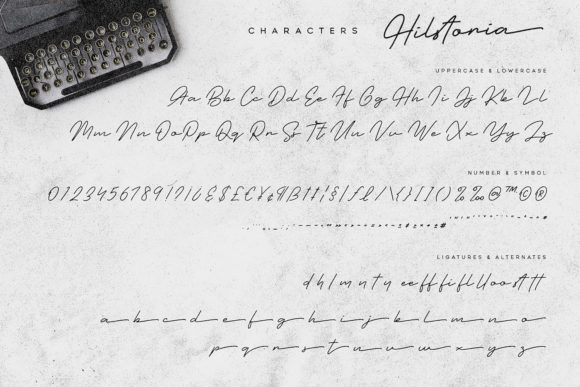 CHARACTERS Hilstonia
UPPERCASE & LOWERCASE
Aa Bb Cc Dd Ee Ff Gg Hh Ii Jj Kk Ll
Mm Nn Oo Pp Qq Rr Ss Tt Uu Vv We Xx Yy Zz
NUMBER & SYMBOL
0123456789!?&$£€¥¢¶ß†‡¡§|ƒℓ/\{}[]()%‰@™©®
LIGATURES & ALTERNATES
d h l m n t y ee ff fi fl ll oo st tt
a b c d e f g h i j k l m n o
p q r s t u v w x y z